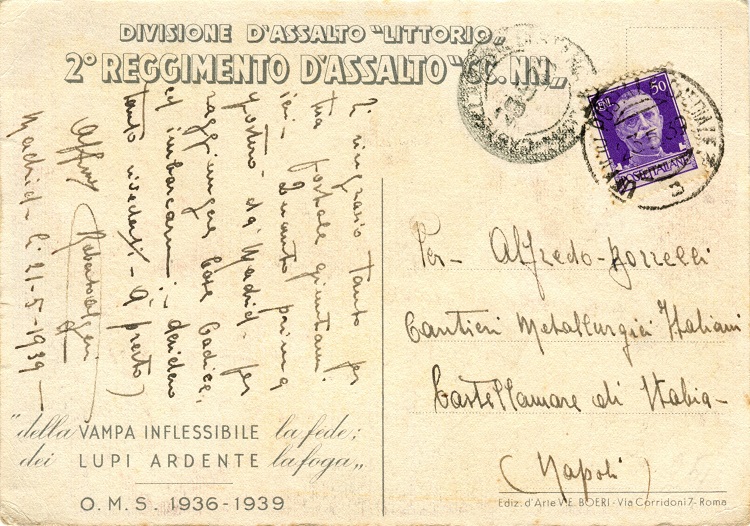 DIVISIONE D'ASSALTO "LITTORIO"
2º REGGIMENTO D'ASSALTO "CC.NN.„
50
POSTE ITALIANE
Ti ringrazio tanto per
tua postale giuntami
ieri. Quanto prima
da Madrid per
raggiungere Cadice
ed imbarcarmi; desidero
tanto rivederti. A presto)
Aff.mo
Madrid - li 21-5-1939 —
Per- Alfredo-Borrelli
Cantieri Metallurgici Italiani
Castellamare di Stabia-
(Napoli)
"della VAMPA INFLESSIBILE la fede;
dei LUPI ARDENTE la foga„
O.M.S. 1936-1939
Ediz. d'Arte V.E. BOERI - Via Corridoni 7 - Roma